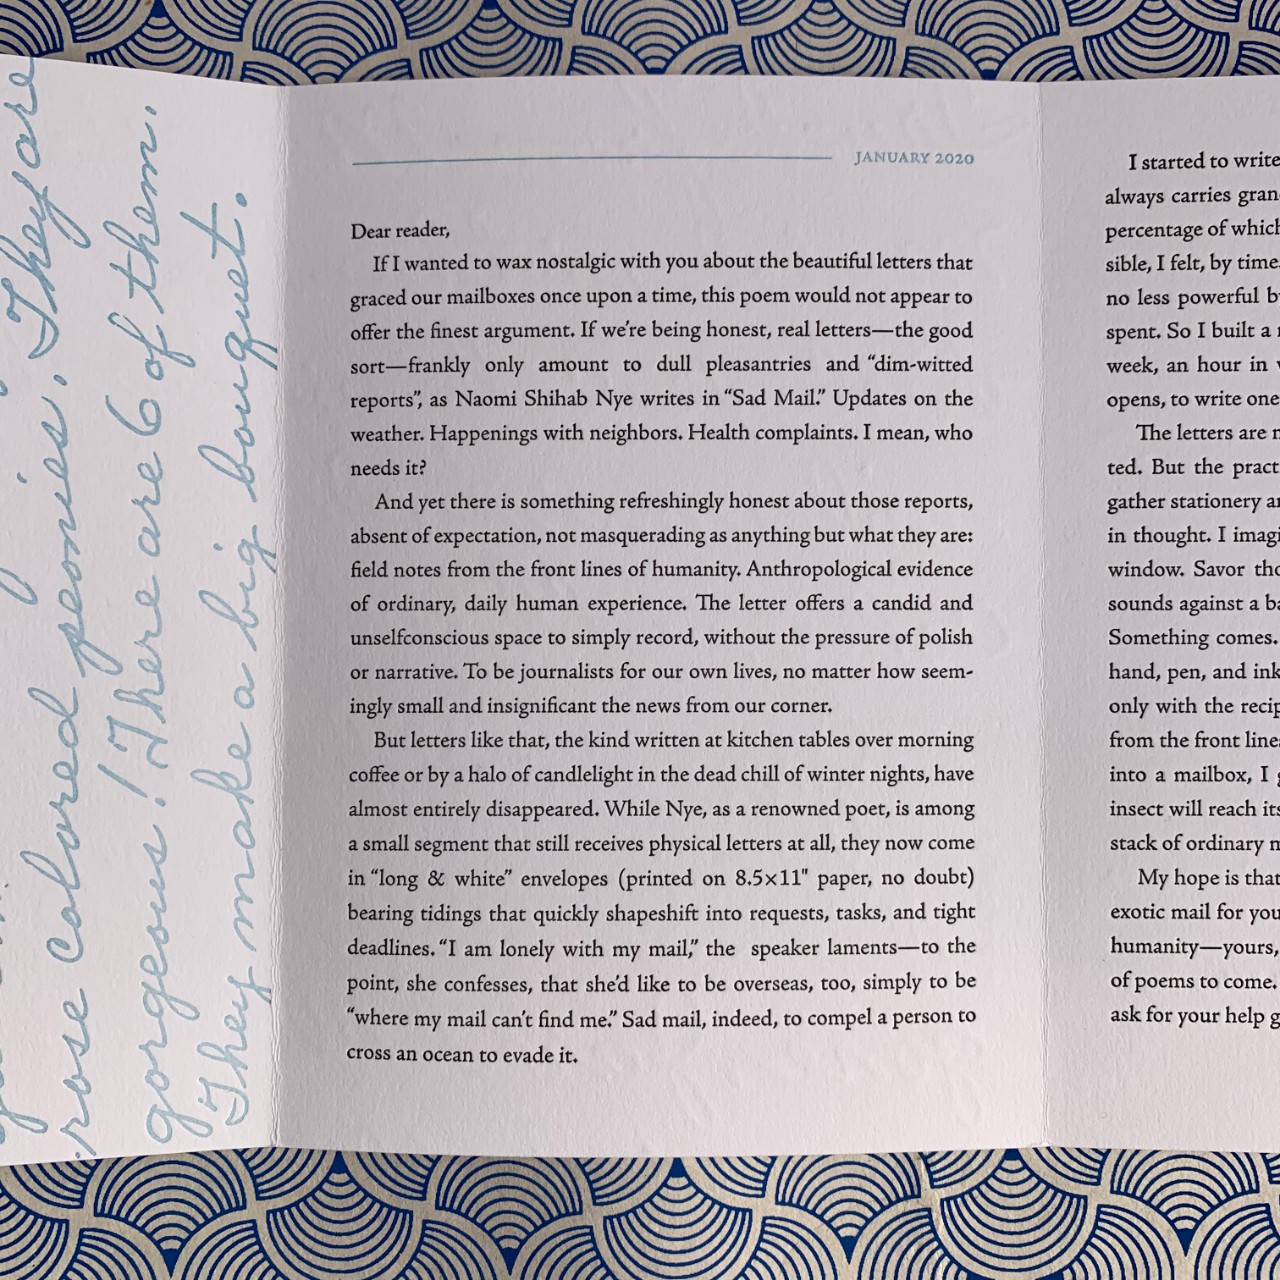 rose colored peonies. They are
gorgeous! There are 6 of them.
They make a big bouquet.
JANUARY 2020
Dear reader,
If I wanted to wax nostalgic with you about the beautiful letters that
graced our mailboxes once upon a time, this poem would not appear to
offer the finest argument. If we're being honest, real letters—the good
sort—frankly only amount to dull pleasantries and “dim-witted
reports”, as Naomi Shihab Nye writes in “Sad Mail.” Updates on the
weather. Happenings with neighbors. Health complaints. I mean, who
needs it?
And yet there is something refreshingly honest about those reports,
absent of expectation, not masquerading as anything but what they are:
field notes from the front lines of humanity. Anthropological evidence
of ordinary, daily human experience. The letter offers a candid and
unselfconscious space to simply record, without the pressure of polish
or narrative. To be journalists for our own lives, no matter how seem-
ingly small and insignificant the news from our corner.
But letters like that, the kind written at kitchen tables over morning
coffee or by a halo of candlelight in the dead chill of winter nights, have
almost entirely disappeared. While Nye, as a renowned poet, is among
a small segment that still receives physical letters at all, they now come
in “long & white” envelopes (printed on 8.5×11" paper, no doubt)
bearing tidings that quickly shapeshift into requests, tasks, and tight
deadlines. “I am lonely with my mail,” the speaker laments—to the
point, she confesses, that she'd like to be overseas, too, simply to be
“where my mail can't find me.” Sad mail, indeed, to compel a person to
cross an ocean to evade it.
I started to write
always carries gran
percentage of which
sible, I felt, by time.
no less powerful b
spent. So I built a
week, an hour in
opens, to write one
The letters are
ted. But the pract
gather stationery a
in thought. I imagi
window. Savor tho
sounds against a ba
Something comes.
hand, pen, and ink
only with the recip
from the front line
into a mailbox, I
insect will reach its
stack of ordinary m
My hope is that
exotic mail for you
humanity—yours,
of poems to come.
ask for your help g